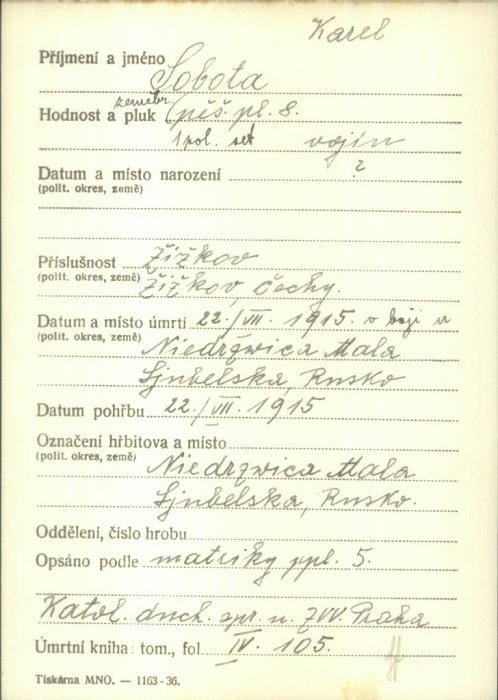 Karel
Příjmení a jméno Sobota
zeměbr.
Hodnost a pluk pěš. pl. 8.
1 pol. set vojín
Datum a místo narození ?
(polit. okres, země)
Příslušnost Žižkov
(polit. okres, země) Žižkov, Čechy.
Datum a místo úmrtí 22./VII. 1915. v boji u
(polit. okres, země) Niedrzwica Mala
Ljubelska, Rusko
Datum pohřbu 22./VII. 1915
Označení hřbitova a místo
(polit. okres, země) Niedrzwica Mala
Ljubelska, Rusko.
Oddělení, číslo hrobu
Opsáno podle matriky ppl. 5.
Katol. duch. spr. u ZVV. Praha
Úmrtní kniha: tom., fol. IV. 105.
Tiskárna MNO. — 1163-36.